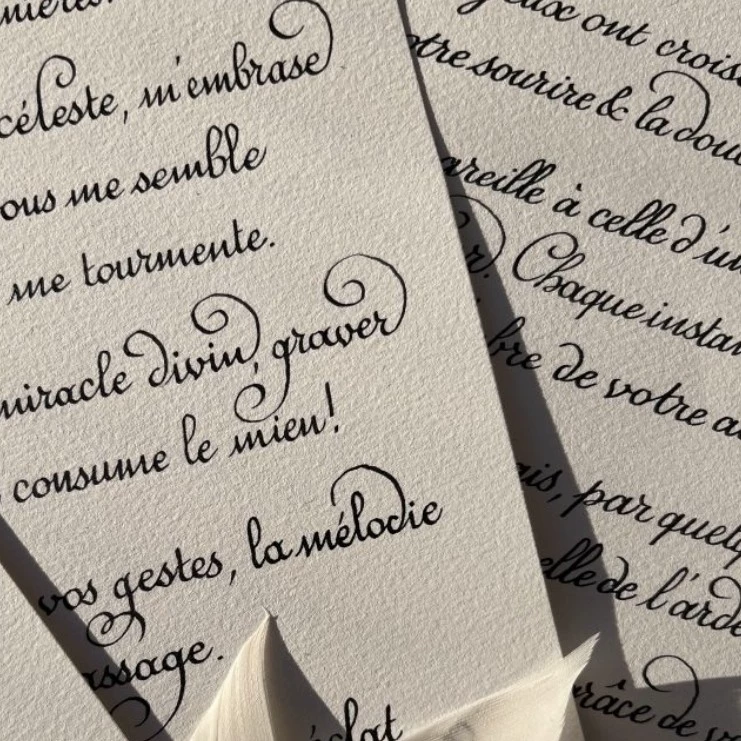 céleste, m'embrase
ous me semble
me tourmente.
miracle divin, graver
consume le mien!
vos gestes, la mélodie
assage.
éclat
yeux ont crois
otre sourire & la dou
areille à celle d'un
r. Chaque instan
bre de votre a
ais, par quelq
elle de l'arde
râce de vo